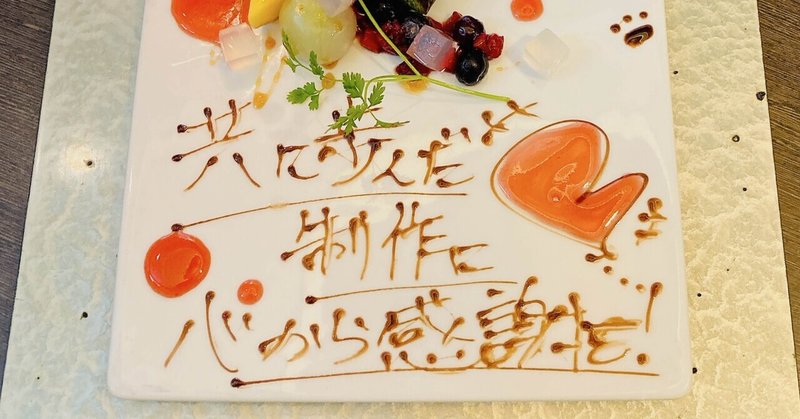 共に歩んだ
制作に
心から感謝を!